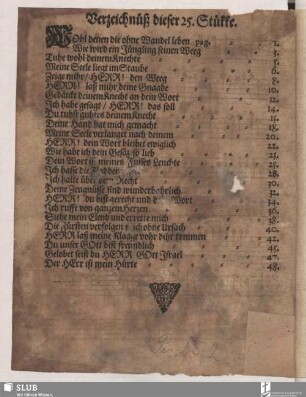 Verzeichnüß dieser 25. Stükke.
Wohl denen die ohne Wandel leben pag. 1.
Wie wird ein Jüngling seinen Weeg
Tuhe wohl deinem Knechte
Meine Seele liegt im Staube
Zeige mihr / HERR! den Weeg
HERR! laß mihr deine Gnaade
Gedänke deinem Knecht an dein Wort
Ich habe gesagt / HERR! das soll
Du tuhst guhtes deinem Knecht
Deine Hand hat mich gemacht
Meine Seele verlanget nach deinem
HERR! dein Wort bleibet ewiglich
Wie habe ich dein Gesäz so lieb
Dein Wort ist meines Fußes Leuchte
Ich hasse die
Ich halte über Recht 30.
Deine Zeugnüsse sind wunderbohrlich 32.
HERR! du bist gerecht und Wort 34.
Ich ruffe von ganzem Herzen 36.
Siehe mein Elend und errette mich 38.
Die Fürsten verfolgen mich ohne Ursach 40.
HERR laß meine Klaage vohr dihr kommen 42.
Du unser GOtt bist freundlich
Gelobet seist du HERR GOtt Israel 47.
Der HErr ist mein Hürte 48.
SLUB
Wir führen Wissen.